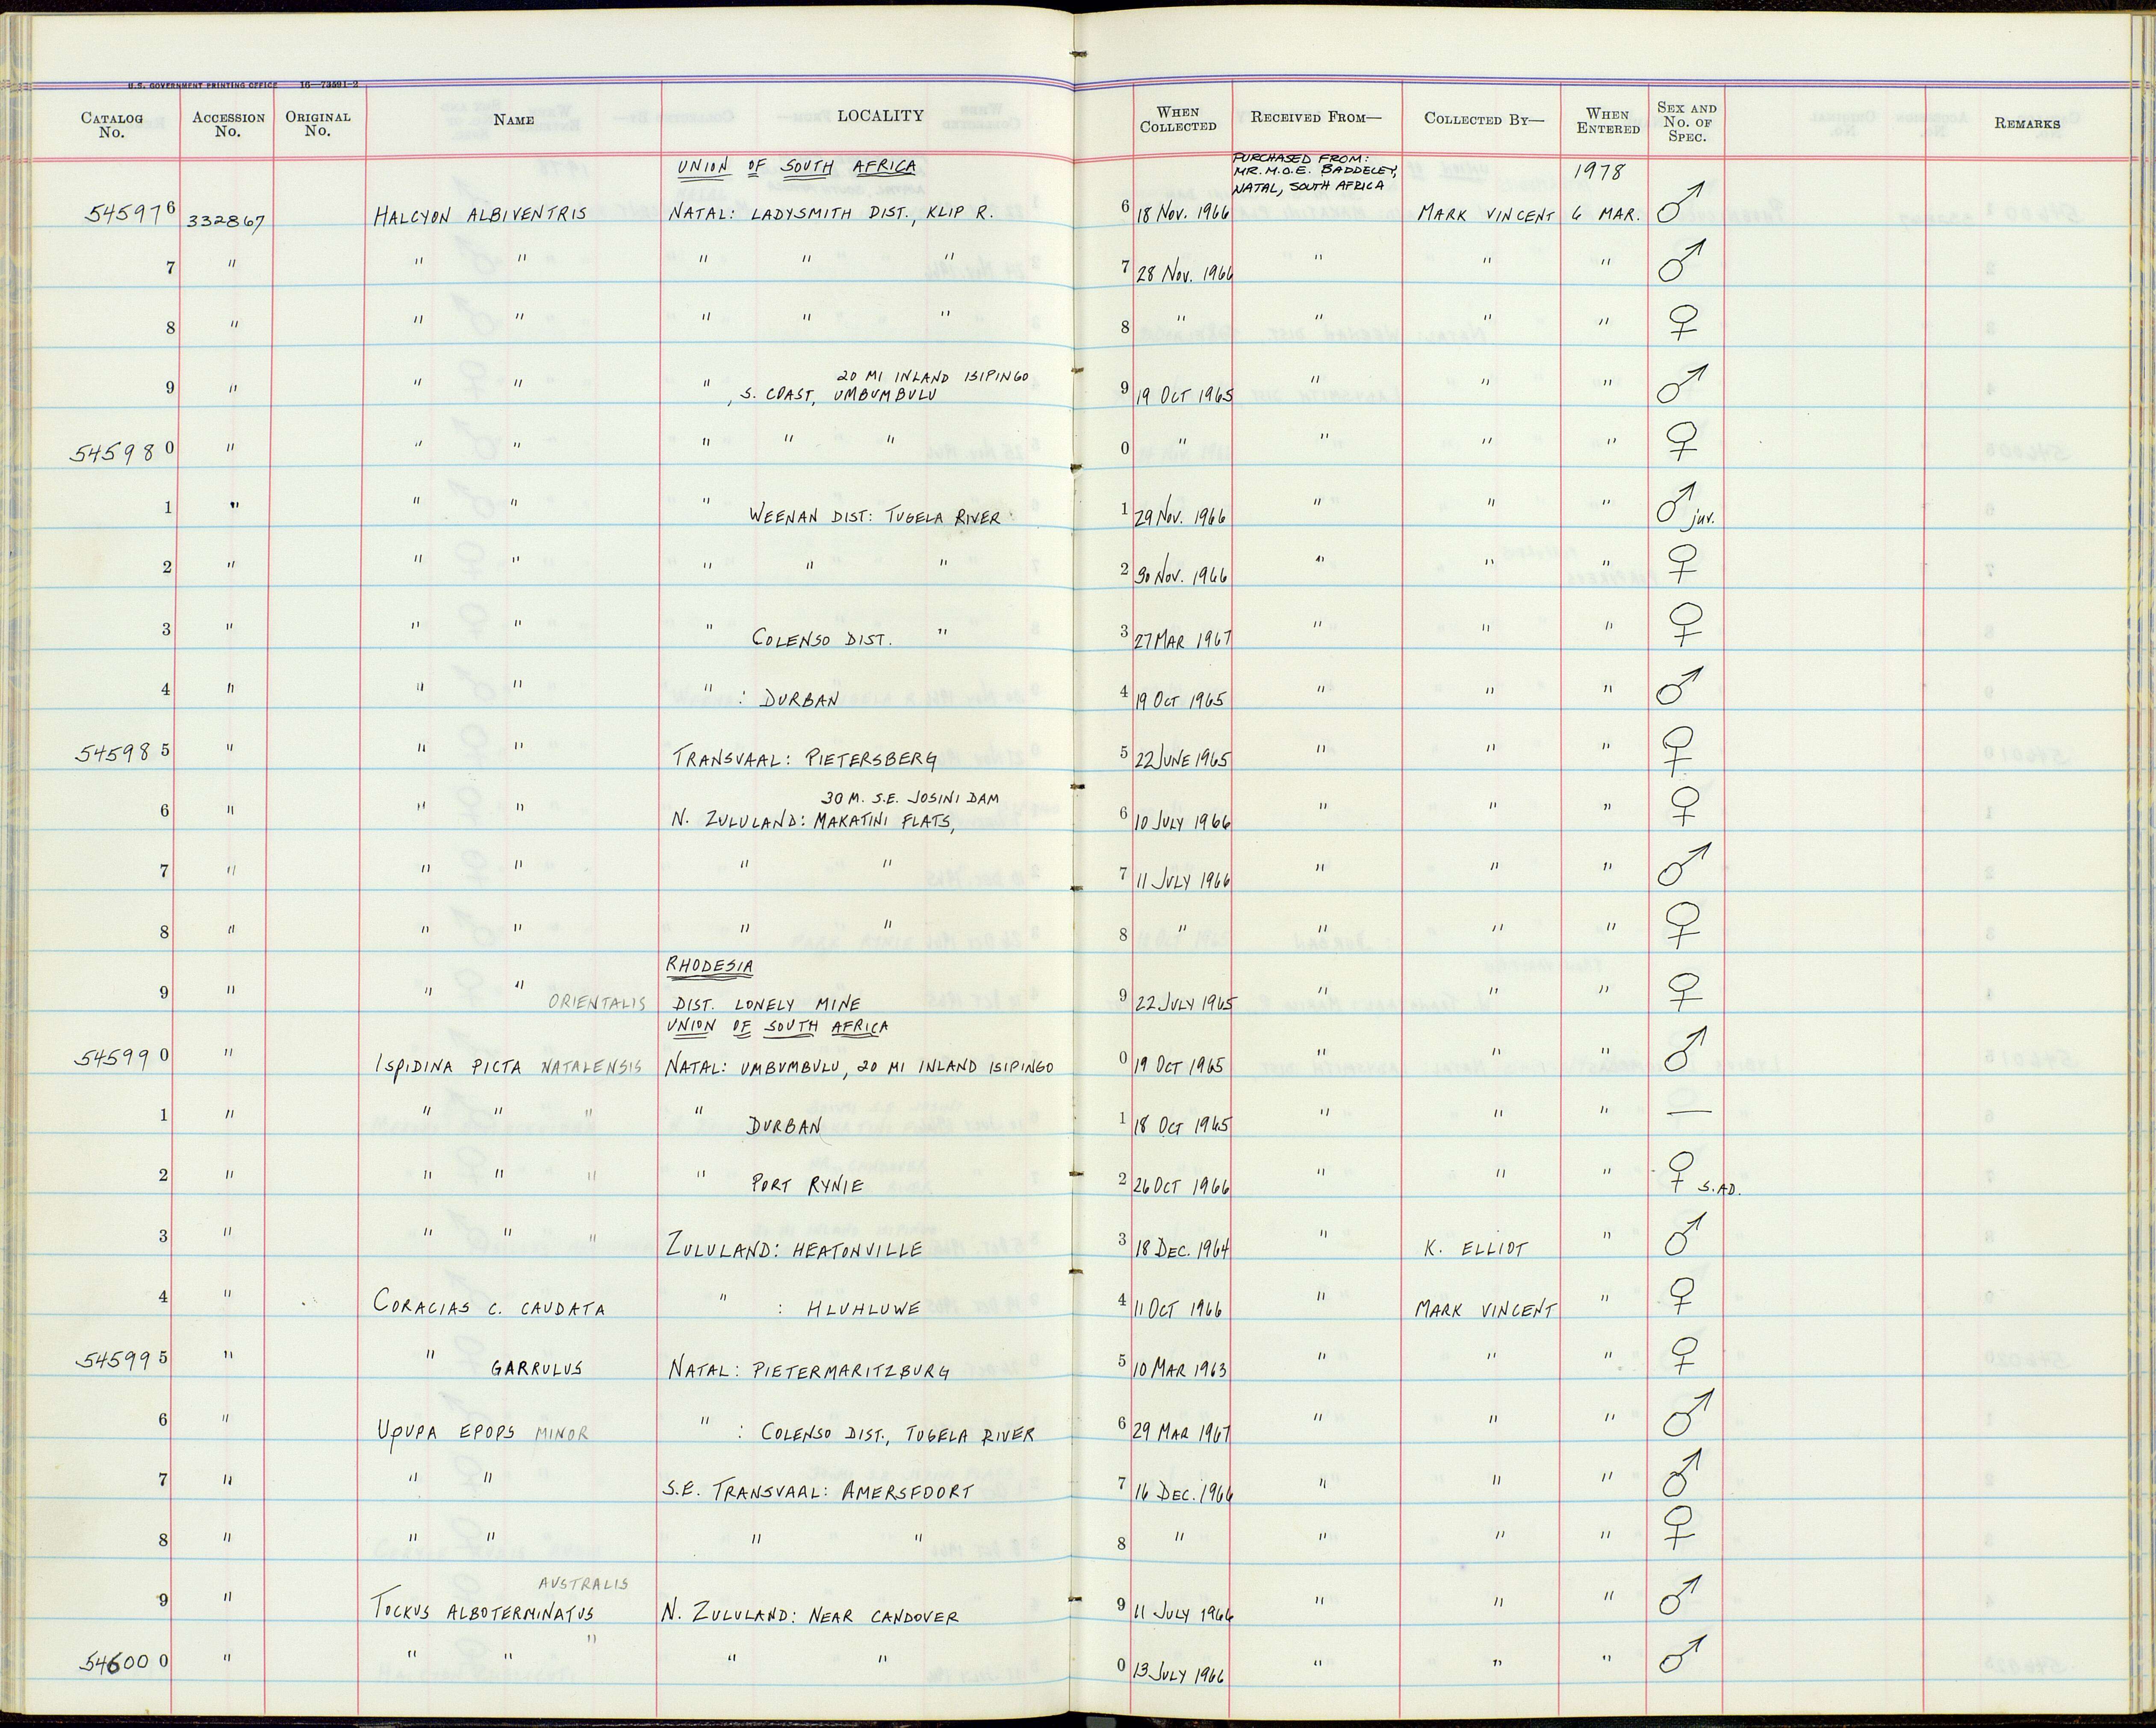 U.S. GOVERNMENT PRINTING OFFICE 16—73591-2
CATALOG No. ACCESSION No. ORIGINAL No. NAME LOCALITY WHEN COLLECTED RECEIVED FROM— COLLECTED BY— WHEN ENTERED SEX AND No. OF SPEC. REMARKS
UNION OF SOUTH AFRICA PURCHASED FROM: MR. M.O.E. BADDELEY, NATAL, SOUTH AFRICA 1978
545976 332867 HALCYON ALBIVENTRIS NATAL: LADYSMITH DIST., KLIP R. 6 18 NOV. 1966 MARK VINCENT 6 MAR. ♂
7 " " " " " " 7 28 NOV. 1966 " " " ♂
8 " " " " " " 8 " " " " ♀
20 MI INLAND ISIPINGO
9 " " " " , S. COAST, UMBUMBULU 9 19 OCT 1965 " " " ♂
545980 " " " " " " 0 " " " " ♀
1 " " " " WEENAN DIST: TUGELA RIVER 1 29 NOV. 1966 " " " ♂ juv.
2 " " " " " " 2 30 NOV. 1966 " " " ♀
3 " " " " COLENSO DIST. " 3 27 MAR 1967 " " " ♀
4 " " " " : DURBAN 4 19 OCT 1965 " " " ♂
545985 " " " TRANSVAAL: PIETERSBERG 5 22 JUNE 1965 " " " ♀
30 M. S.E. JOSINI DAM
6 " " " N. ZULULAND: MAKATINI FLATS, 6 10 JULY 1966 " " " ♀
7 " " " " " 7 11 JULY 1966 " " " ♂
8 " " " " " 8 " " " " ♀
RHODESIA
9 " " " ORIENTALIS DIST. LONELY MINE 9 22 JULY 1965 " " " ♀
UNION OF SOUTH AFRICA
545990 " ISPIDINA PICTA NATALENSIS NATAL: UMBUMBULU, 20 MI INLAND ISIPINGO 0 19 OCT 1965 " " " ♂
1 " " " " " DURBAN 1 18 OCT 1965 " " " —
2 " " " " " PORT RYNIE 2 26 OCT 1966 " " " ♀ S.AD.
3 " " " " ZULULAND: HEATONVILLE 3 18 DEC. 1964 " K. ELLIOT " ♂
4 " CORACIAS C. CAUDATA " : HLUHLUWE 4 11 OCT 1966 " MARK VINCENT " ♀
545995 " " GARRULUS NATAL: PIETERMARITZBURG 5 10 MAR 1963 " " " ♀
6 " UPUPA EPOPS MINOR " : COLENSO DIST., TUGELA RIVER 6 29 MAR 1967 " " " ♂
7 " " " S.E. TRANSVAAL: AMERSFOORT 7 16 DEC. 1966 " " " ♂
8 " " " " " 8 " " " " ♀
AUSTRALIS
9 " TOCKUS ALBOTERMINATUS N. ZULULAND: NEAR CANDOVER 9 11 JULY 1966 " " " ♂
546000 " " " " " " 0 13 JULY 1966 " " " ♂